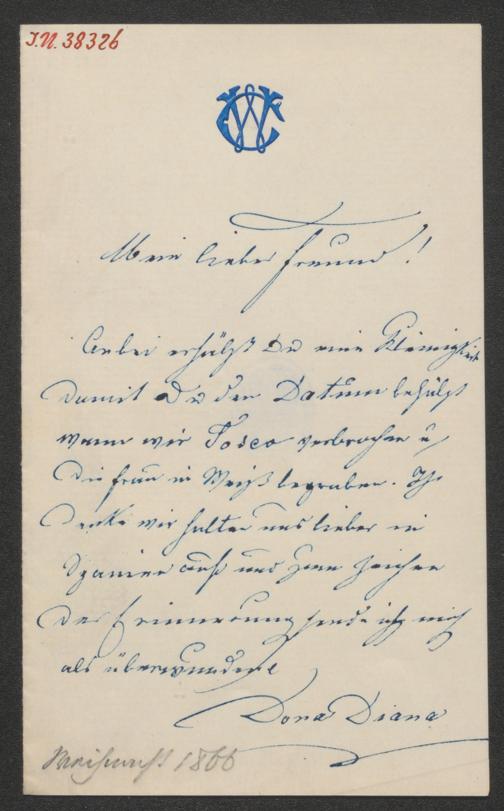 I.N. 38326
CW
Mein lieber Freund!
Anbei erhältst Du eine Kleinigkeit
damit Du den Datum behältst
wann wir Tosca verbrochen u
die Frau in Weiß begraben. Ich
denke wir halten uns lieber in
Spanien auf und zum Zeichen
der Erinnerung sende ich mich
als überwundene
Dona Diana
Weihnacht 1866